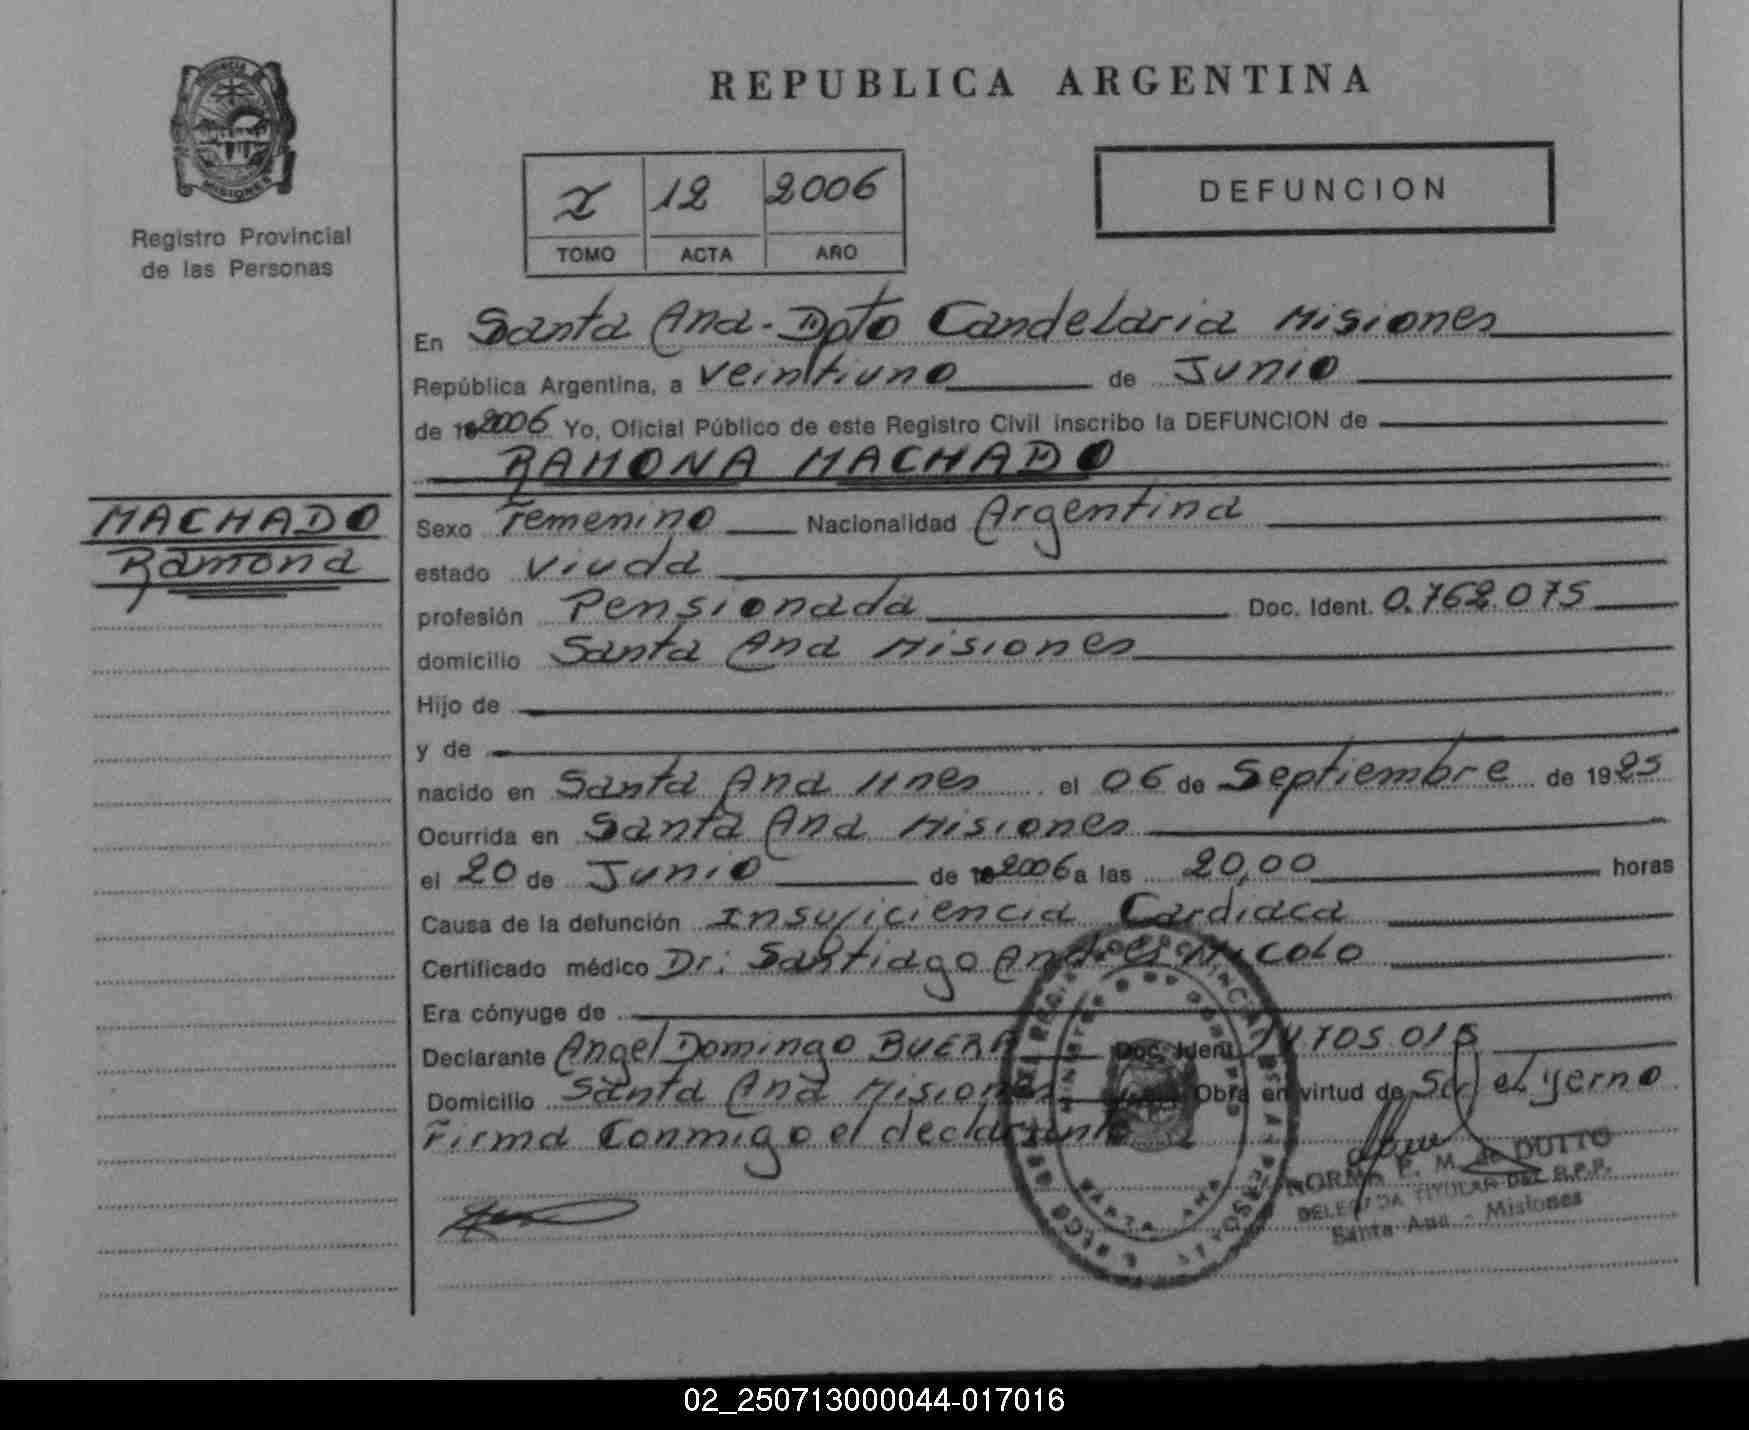 REPUBLICA ARGENTINA
PROVINCIA DE
MISIONES
Registro Provincial
de las Personas
I 12 2006
TOMO ACTA AÑO
DEFUNCION
En Santa Ana - Dpto Candelaria Misiones
República Argentina, a veintiuno de Junio
de 192006 Yo, Oficial Público de este Registro Civil inscribo la DEFUNCION de
RAMONA MACHADO
MACHADO
Ramona
Sexo Femenino Nacionalidad Argentina
estado Viuda
profesión Pensionada Doc. Ident. 0.762.075
domicilio Santa Ana Misiones
Hijo de
y de
nacido en Santa Ana Mnes el 06 de Septiembre de 19
Ocurrida en Santa Ana Misiones
el 20 de Junio de 192006 a las 20,00 horas
Causa de la defunción Insuficiencia Cardiaca
Certificado médico Dr: Santiago Andres Nicolo
Era cónyuge de
Declarante Angel Domingo BUERA Doc. Ident.
Domicilio Santa Ana Misiones Obra en virtud de Ser el yerno
Firma Conmigo el declarante
NORMA P. M. de DUTTO
DELEGADA TITULAR DEL R.P.P.
Santa Ana - Misiones
SANTA ANA
02_250713000044-017016